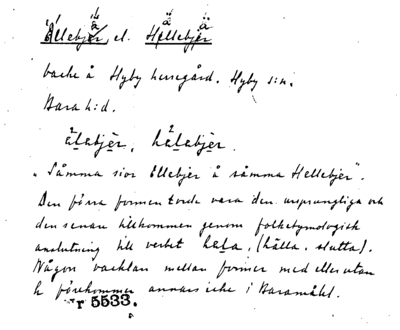 Ellebjer el. Hellebjer
backe å Hyby herregård. Hyby s:n.
Bara h:d.
älabjer, hälabjer.
"Såmma sior Ellebjer å såmma Hellebjer".
Den förra formen torde vara den ursprungliga och
den senare tillkommen genom folketymologisk
anslutning till verbet hala, (hälla, slutta).
Någon växlan mellan former med eller utan
h förekommer annars icke i Baramålet.
r 5533.